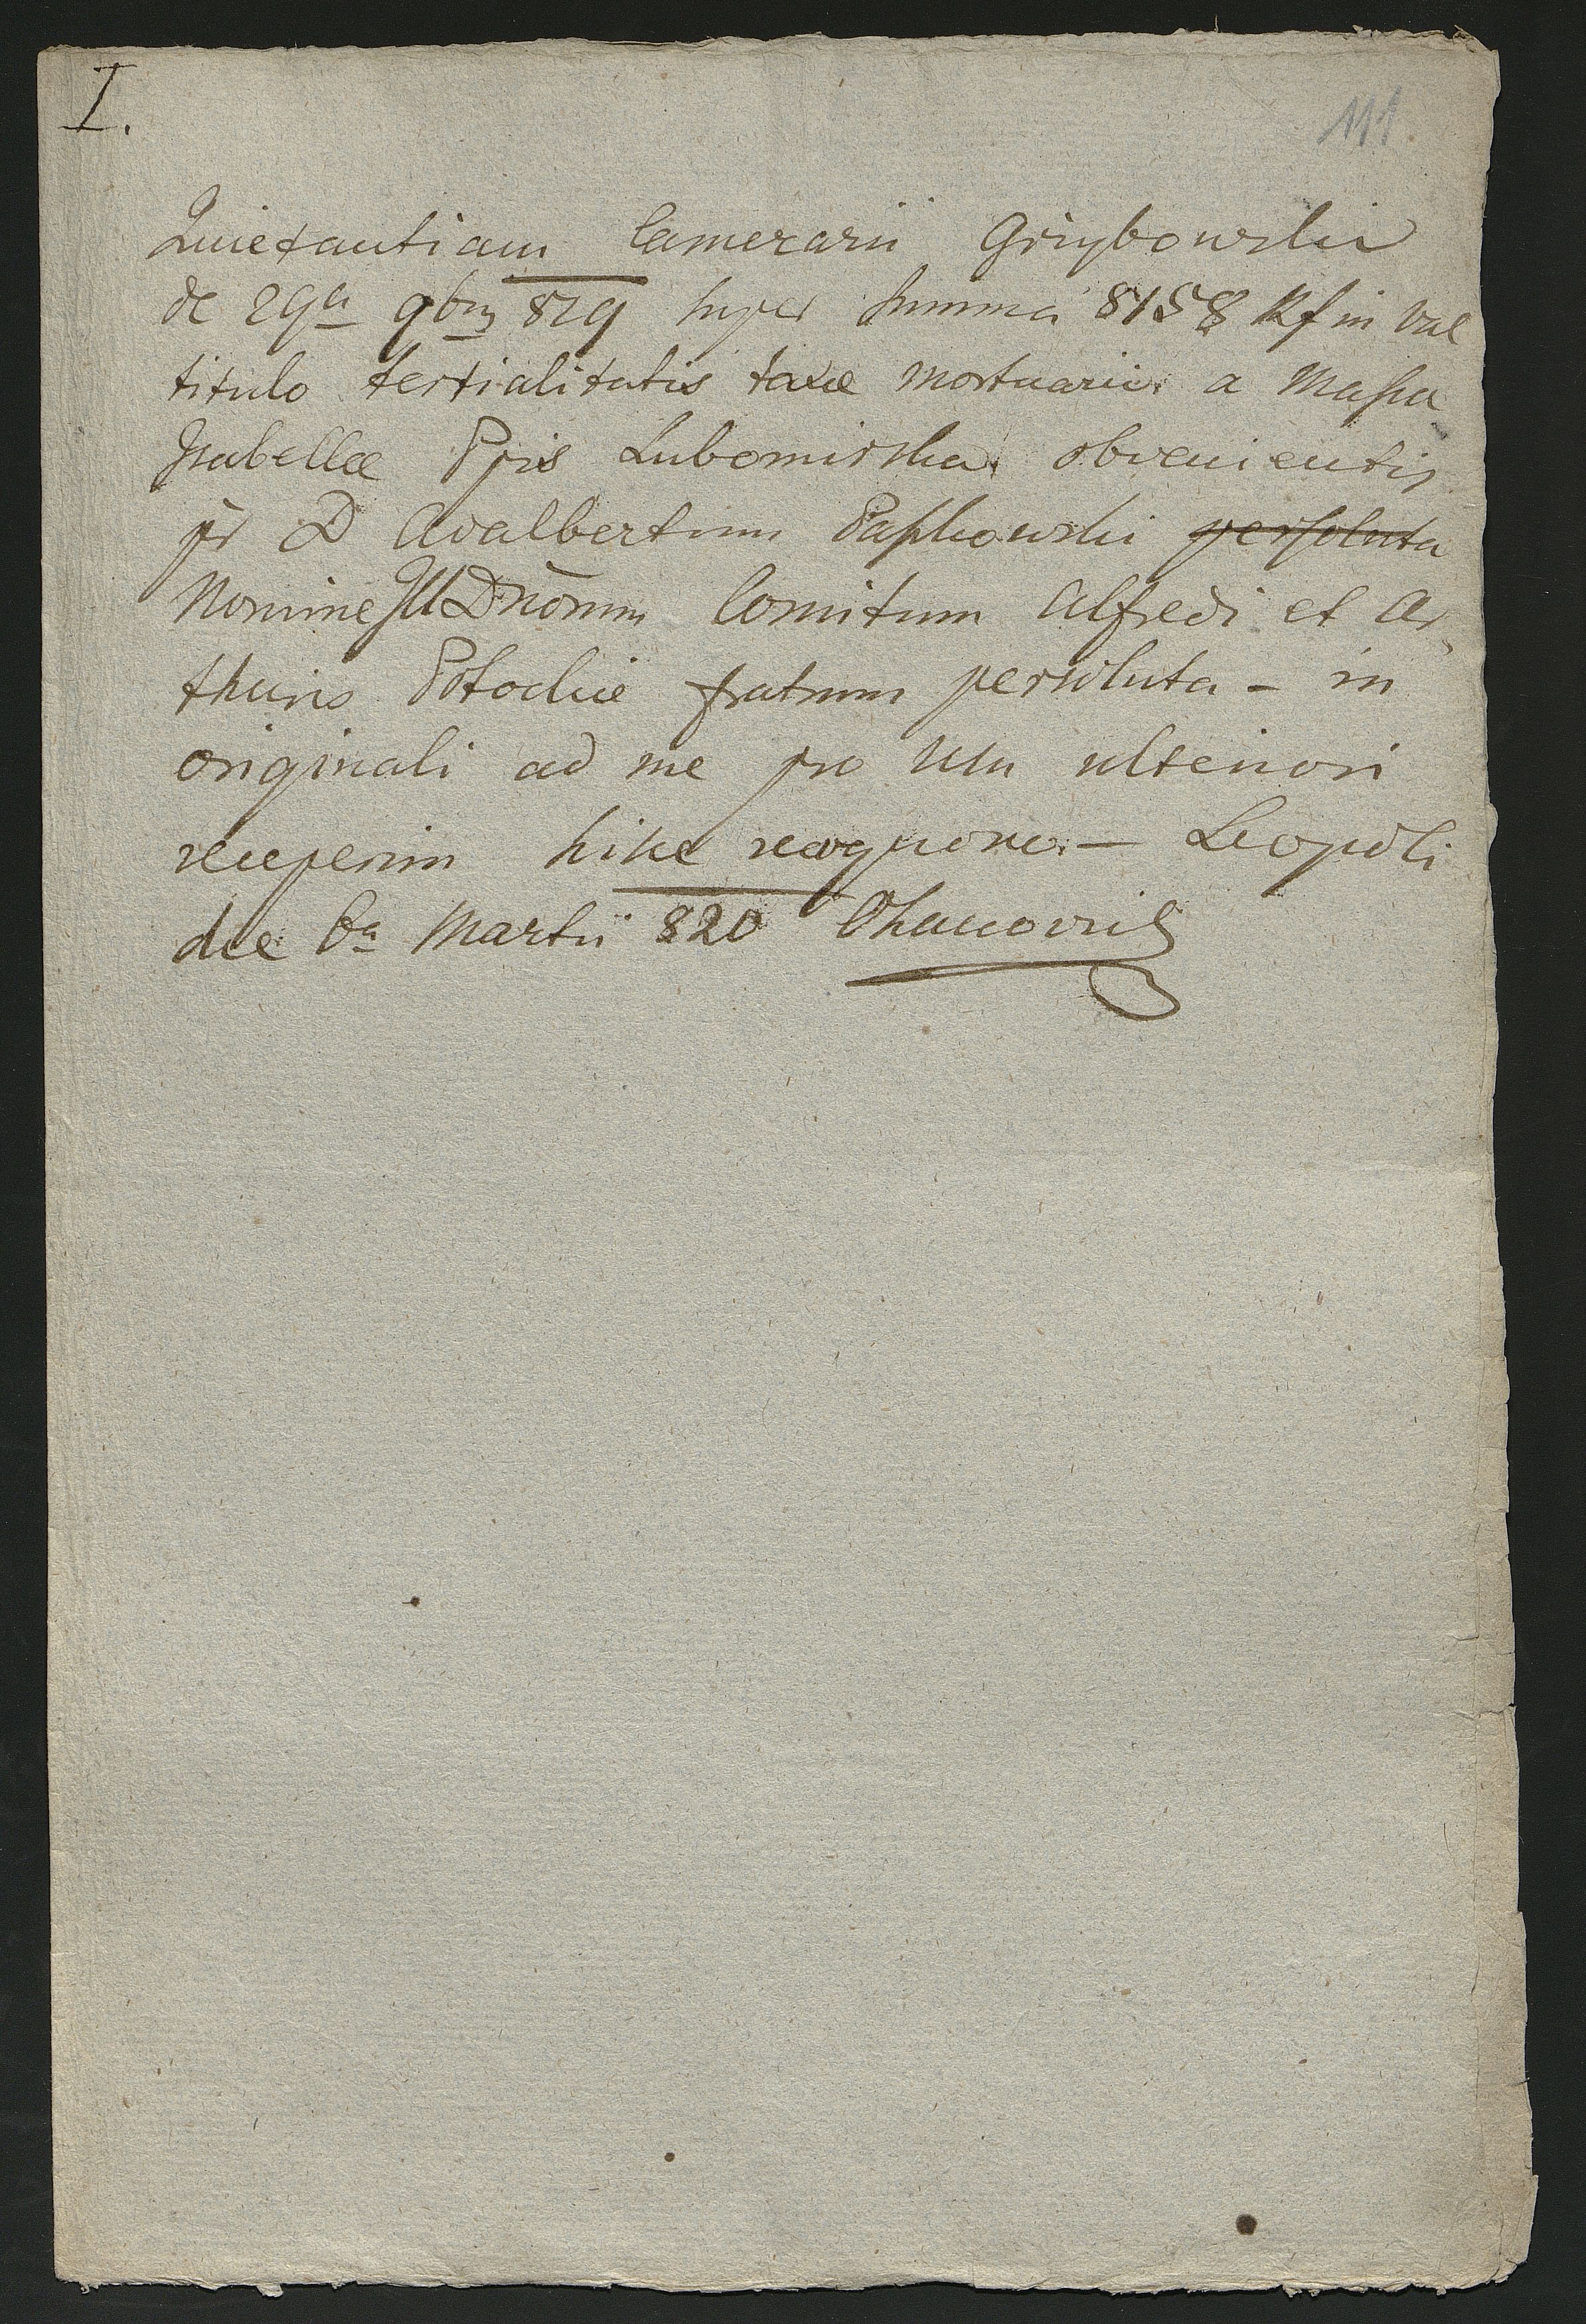 I.
111
Quietantiam Camerarii Grzybowski
de 29a 9bris 819 super summa 8158 Rf in Val
titulo tertialitatis taxæ mortuariæ a Massa
Isabellæ Ppis Lubomirska obvenientis
pr D Adalbertum Paszkowski persoluta
Nomine Ill Dnorum Comitum Alfredi et Ar
thuris Potockie fratrum persoluta – in
originali ad me pro usu ulteriori
receperim hisce recognosco. – Leopoli
die 6a Martii 820